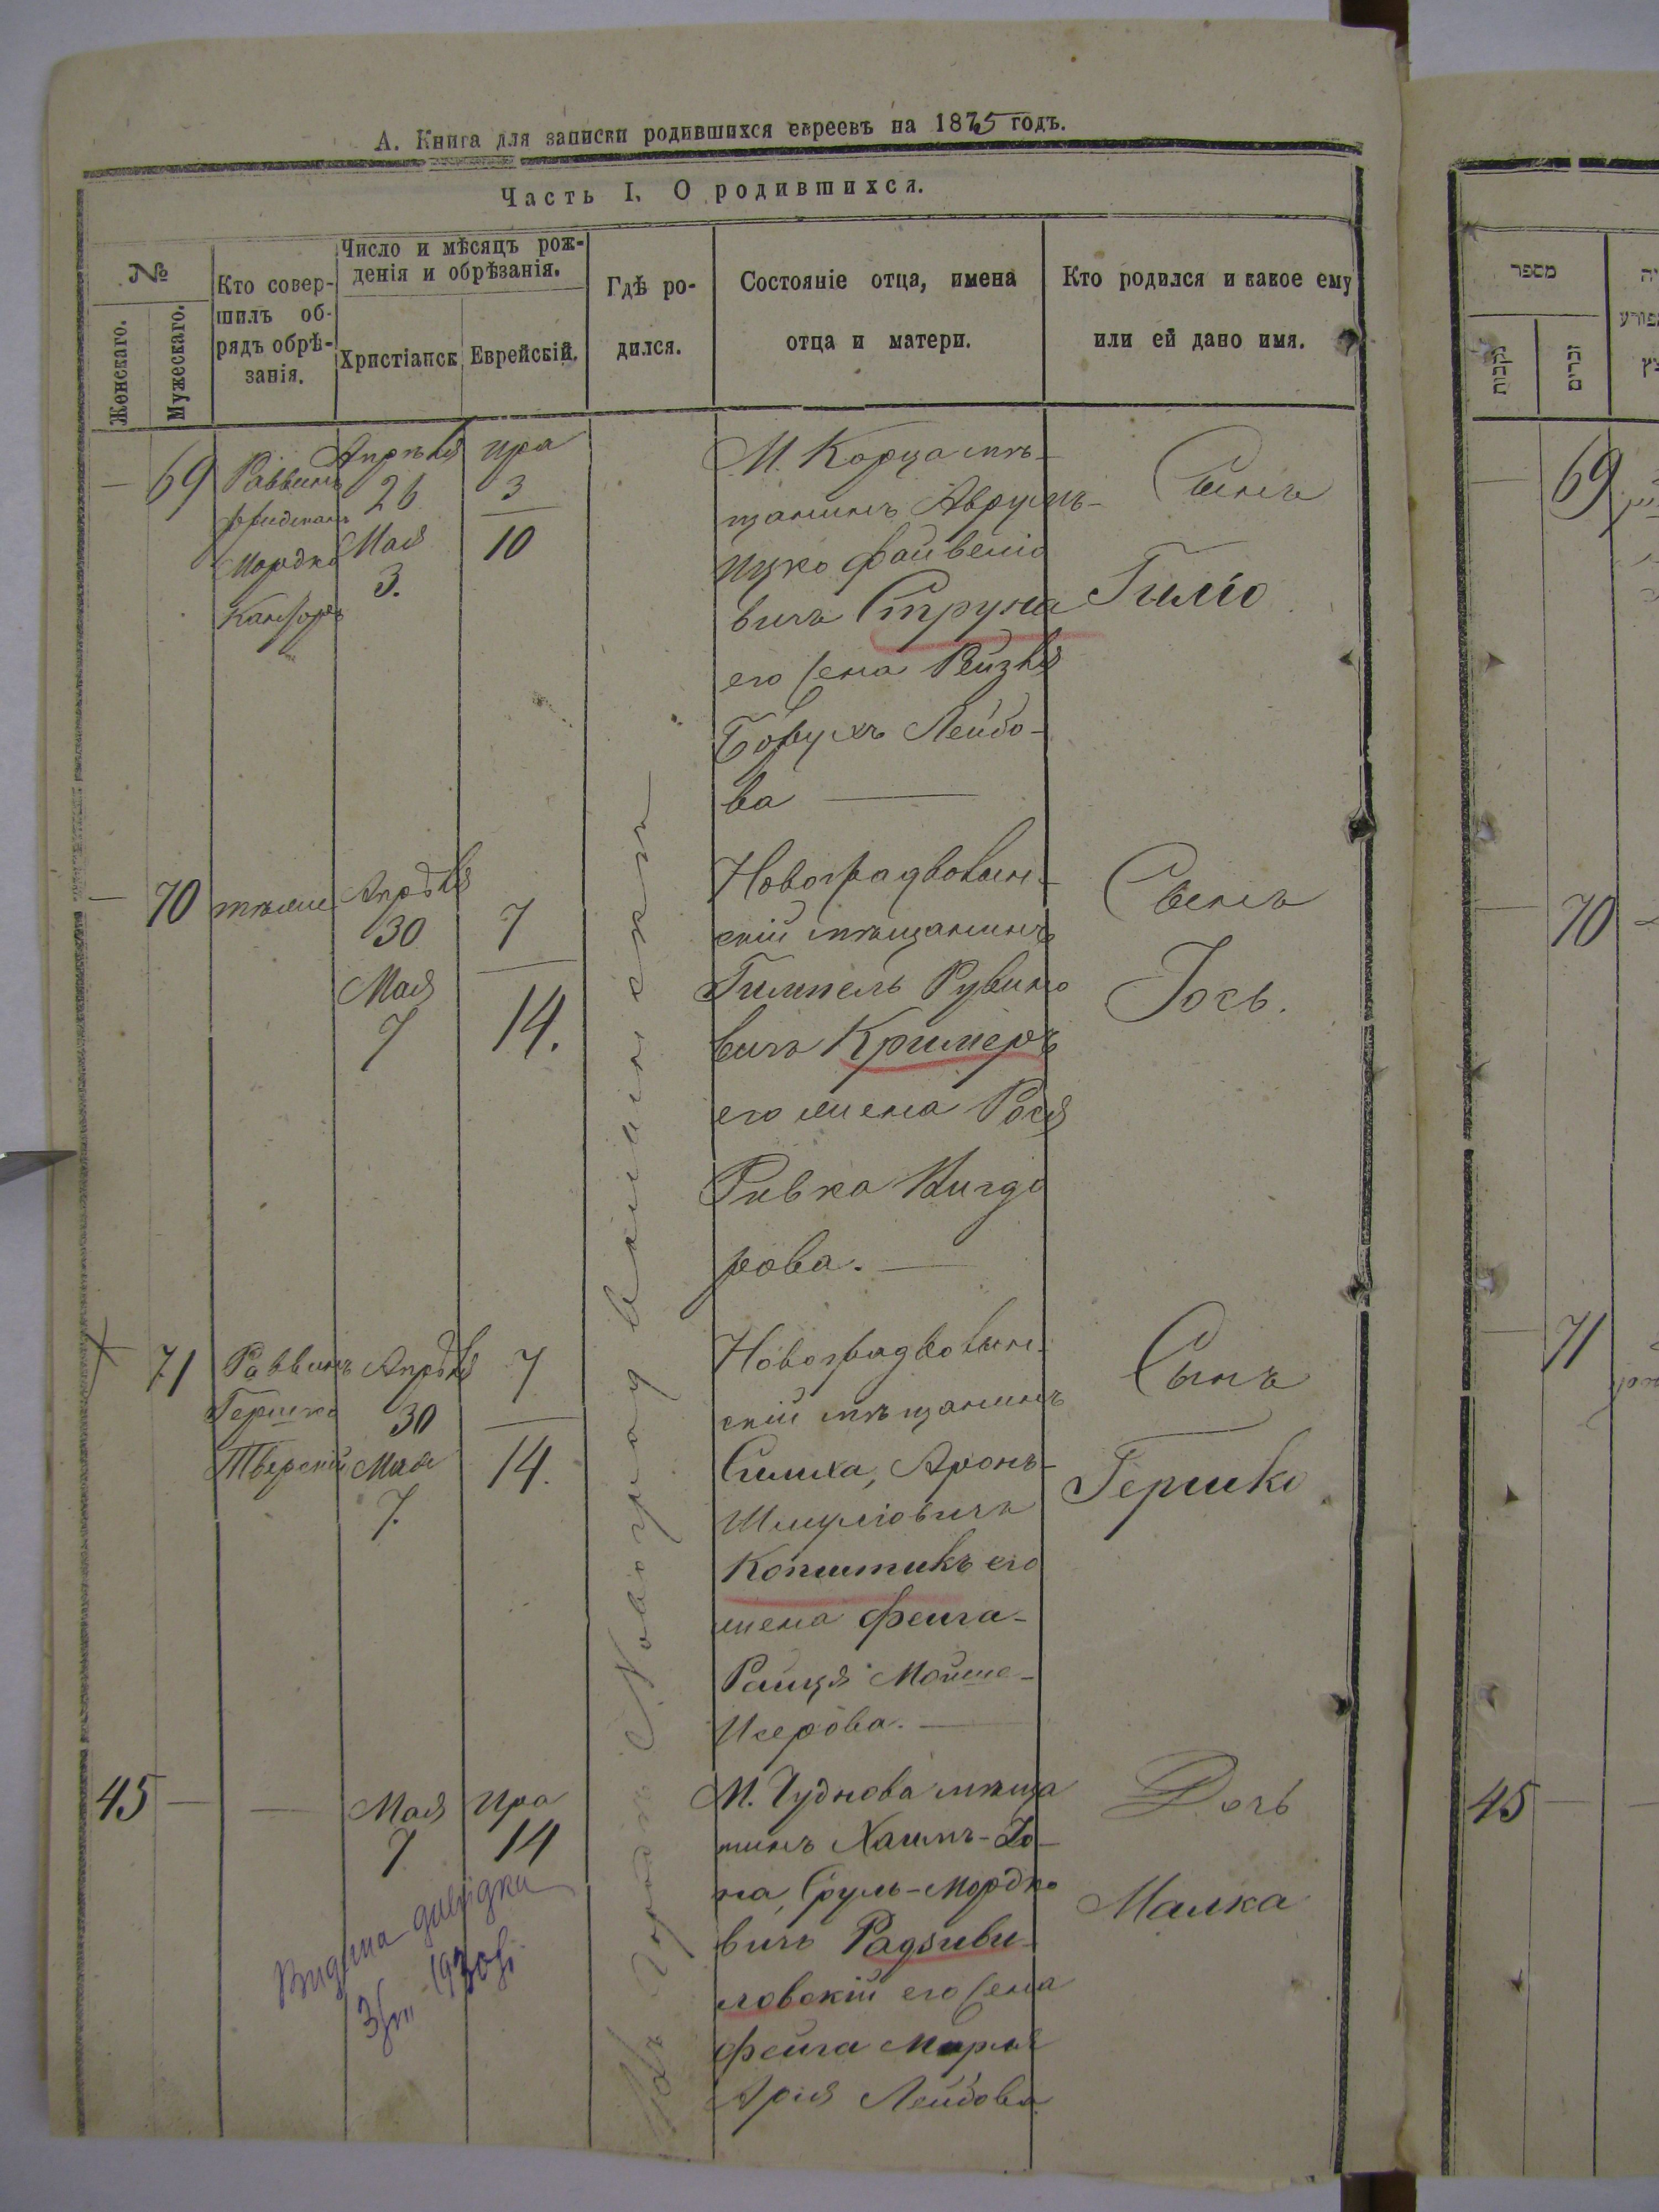 А. Книга для записки родившихся евреевъ на 1875 годъ.
Часть I. О родившихся.
№
Женскаго.
Мужескаго.
Кто совер-
шилъ об-
рядъ обрѣ-
занія.
Число и мѣсяцъ рож-
денія и обрѣзанія.
Христіанск
Еврейскій.
Гдѣ ро-
дился.
Состояніе отца, имена
отца и матери.
Кто родился и какое ему
или ей дано имя.
Въ городѣ Новоградволынскѣ
— 69
Раввинъ
Фридманъ
Мордко
Канторъ
Апрѣля
26
Мая
3.
Ира
3
10
М. Корца мѣ-
щанинъ Аврумъ-
Ицко Файвелiо
вичъ Струна
его жена Рейзля
Борухъ Лейбо-
ва
Сынъ
Гилiо
— 70
тѣже
Апрѣля
30
Мая
7
7
14.
Новоградволын-
скій мѣщанинъ
Гимпель Рувино
вичъ Кримеръ
его жена Рося
Ривка Авигдо
рова.
Сынъ
Іось.
71
Раввинъ
Гершко
Тверскій
Апрѣля
30
Мая
7.
7
14.
Новоградволын-
скій мѣщанинъ
Симха, Аронъ-
Шмулiовичъ
Копштикъ его
жена Фейга-
Раиця Мойше-
Исерова.
Сынъ
Гершко
45 —
—
Мая
7
Ира
14
М. Чуднова мѣща
нинъ Хаимъ-Іо-
на, Сруль-Мордко
вичъ Радзиви-
ловскій его жена
Фейга Марья
Арія Лейбова
Дочь
Малка
Видана довідка
3/VIII 1930р.
מספר
נקבות
זכרים
69
70
71
45